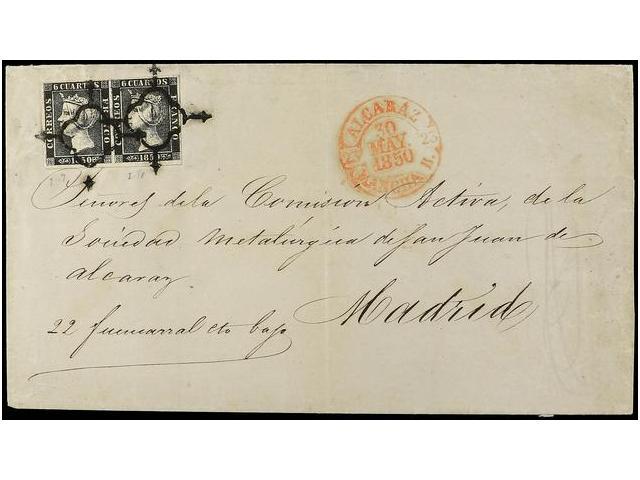 6 CUARTOS 6 CUARTOS
CORREOS FRANCO CORREOS FRANCO
1850 1850
ALCARAZ
30
MAY.
1850
MANCHA B.
Señores de la Comision Activa, de la
Sociedad Metalúrgica de San Juan de
Alcaraz
Madrid
22 fuencarral cto bajo